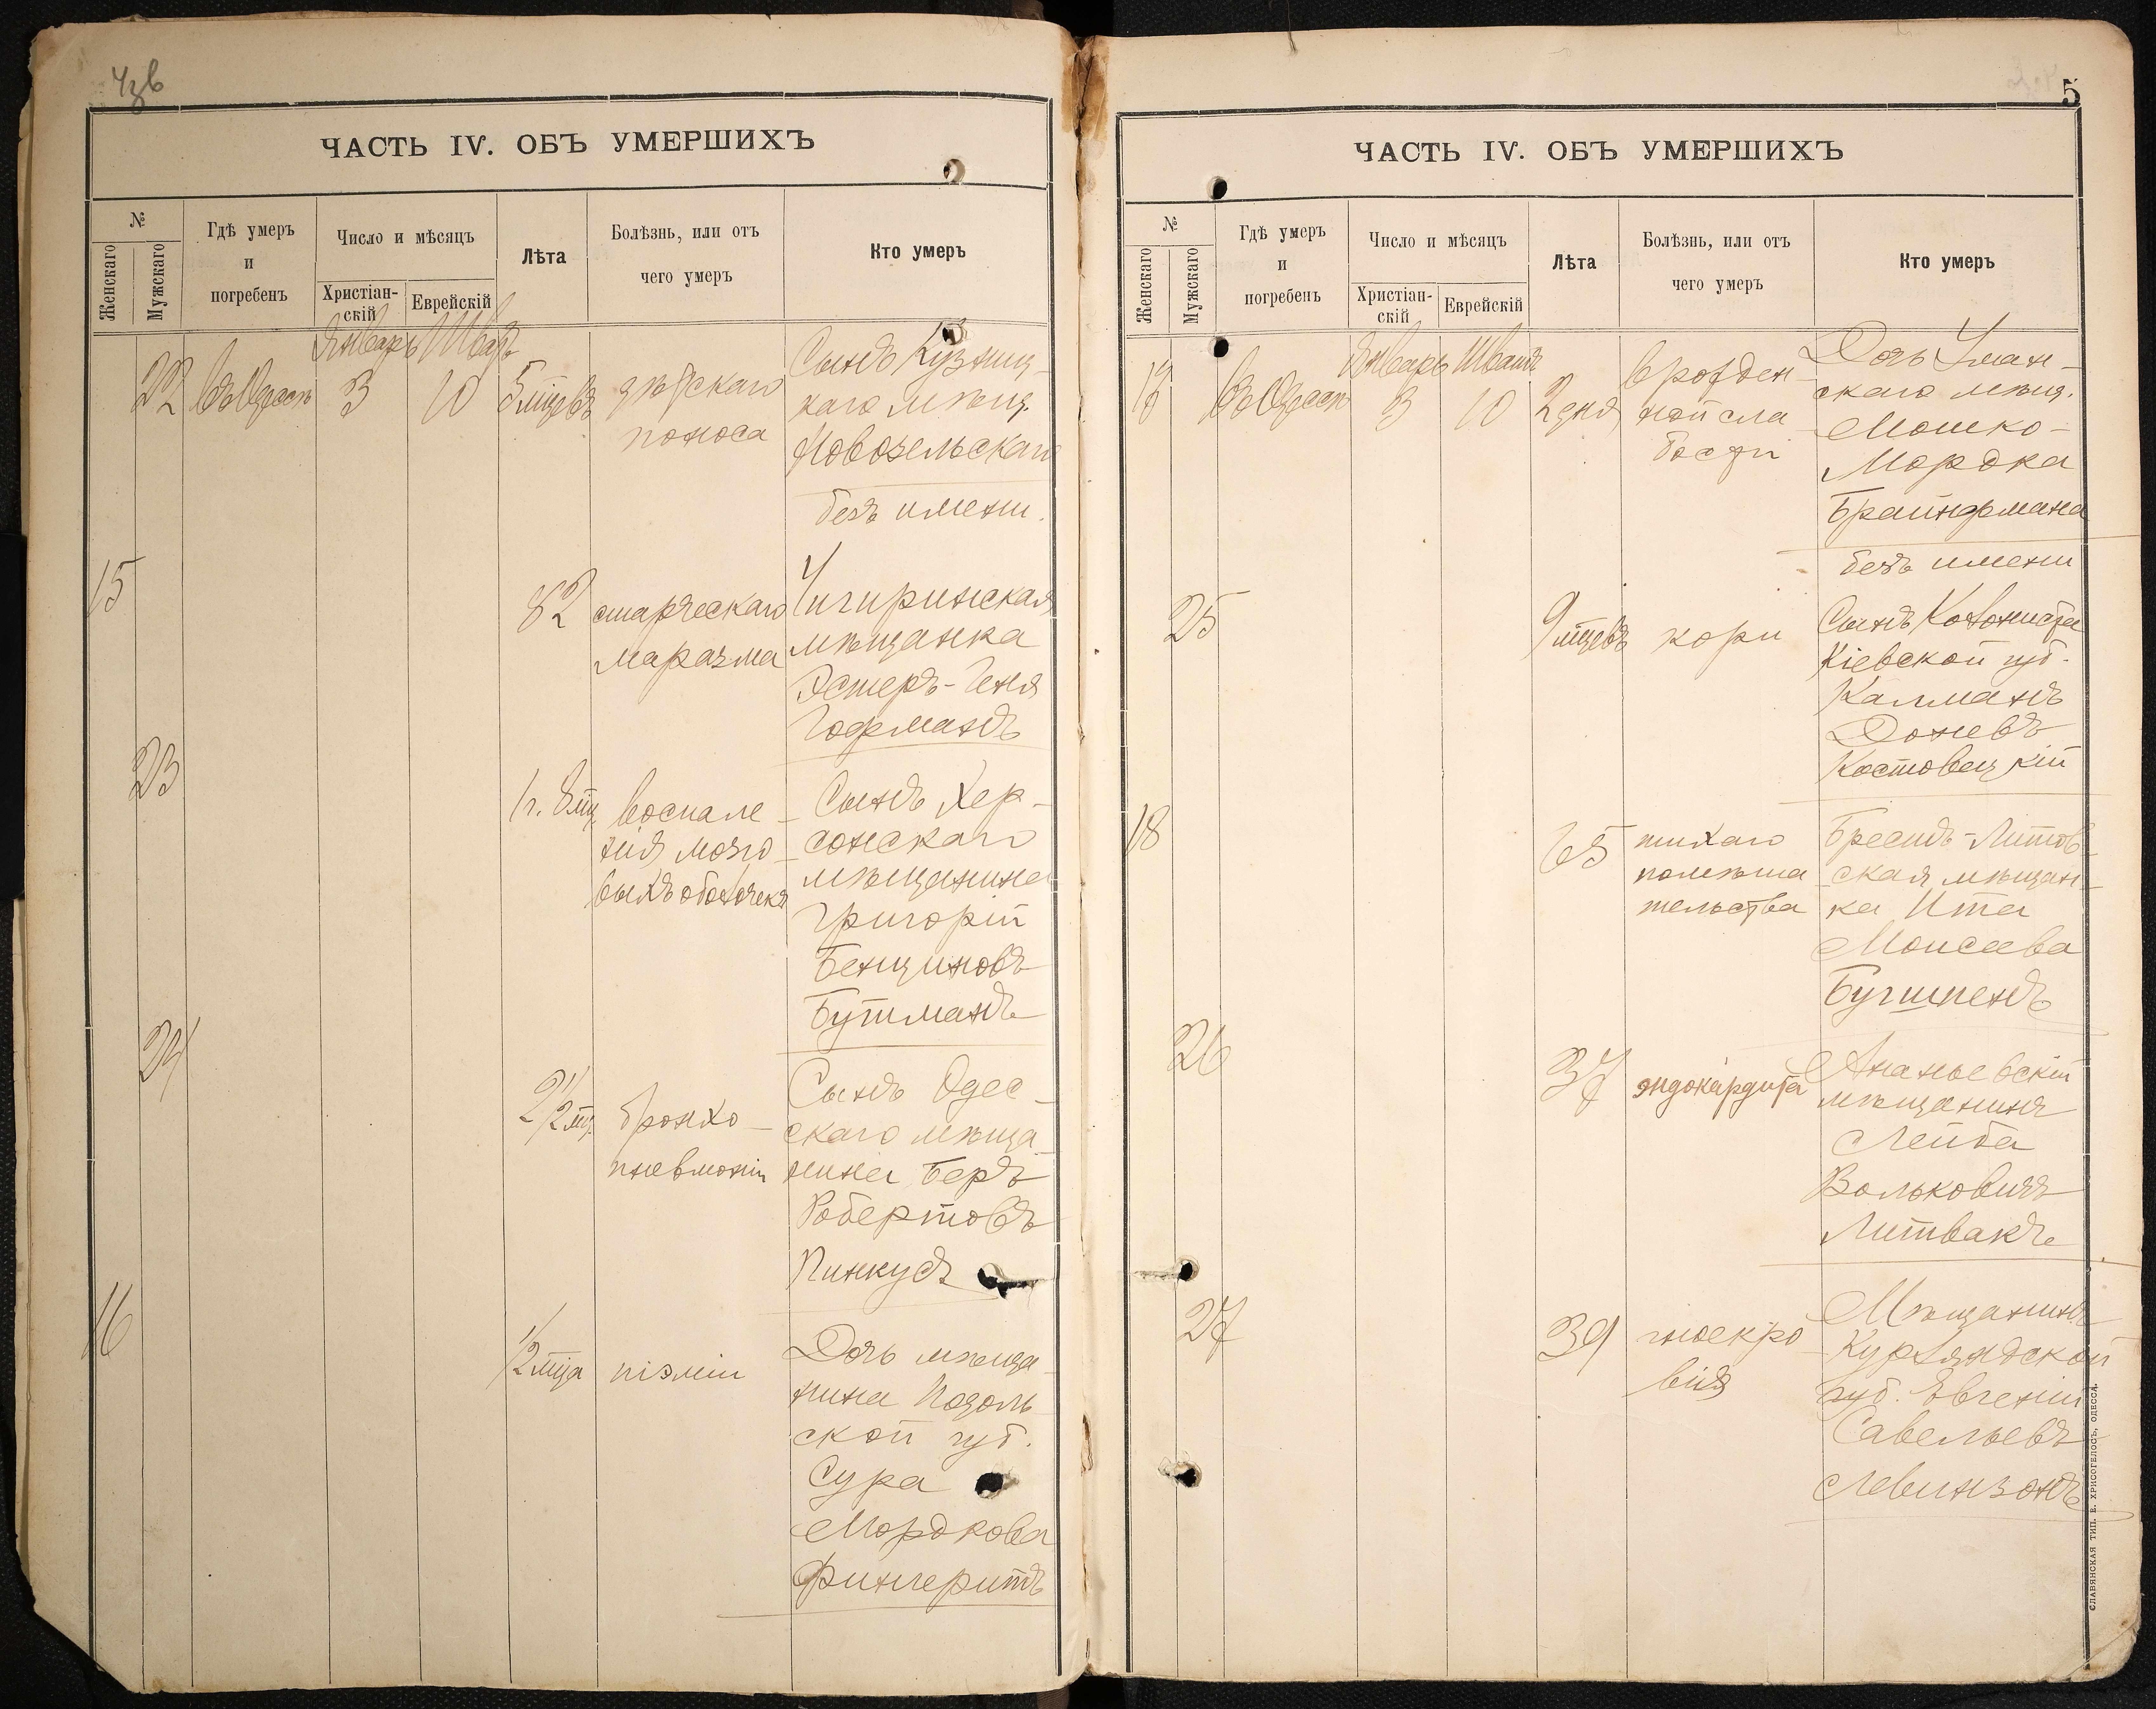 ЧАСТЬ IV. ОБЪ УМЕРШИХЪ
№
Женскаго
Мужскаго
Гдѣ умеръ
и
погребенъ
Число и мѣсяцъ
Христіан-
скій
Еврейскій
Лѣта
Болѣзнь, или отъ
чего умеръ
Кто умеръ
Январь Шватъ
22 въ Одессѣ 3 10 5 мцевъ дѣтскаго
поноса
Сынъ Кузниц-
каго мѣщ.
Новосельскаго
безъ имени.
15 82 старческаго
маразма
Чигиринская
мѣщанка
Эстеръ-Геня
Гофманъ
23 1 г. 8 мц. воспале-
нія мозго-
выхъ оболочекъ
Сынъ Хер-
сонскаго
мѣщанина
Григорій
Бенціновъ
Бутманъ
24 2 1/2 мц. бронхо-
пневмоніи
Сынъ Одес-
скаго мѣща-
нина Беръ
Робертовъ
Пинкусъ
16 1/2 мца піэміи
Дочь мѣща
нина Подоль
ской губ.
Сура
Мордкова
Фингеритъ
5
ЧАСТЬ IV. ОБЪ УМЕРШИХЪ
№
Женскаго
Мужскаго
Гдѣ умеръ
и
погребенъ
Число и мѣсяцъ
Христіан-
скій
Еврейскій
Лѣта
Болѣзнь, или отъ
чего умеръ
Кто умеръ
Январь Шватъ
въ Одессѣ 3 10 2 дня врожден-
ной сла
бости
Дочь Уман-
скаго мѣщ.
Мошко-
Мордка
Брайнермана
безъ имени
25 9 мцевъ кори
Сынъ Колониста
Кіевской губ.
Калманъ
Доневъ
Костовецкій
18 65 тихаго
помѣша
тельства
Брестъ-Литов-
ская мѣщан-
ка Ита
Моисеева
Бугшпенъ
26 37 эндокардита
Ананьевскій
мѣщанинъ
Лейба
Вольковичъ
Литвакъ
27 39 гноекро-
вія
Мѣщанинъ
Курляндской
губ. Евгеній
Савельевъ
Левинзонъ
СЛАВЯНСКАЯ ТИП. Е. ХРИСОГЕЛОСЪ, ОДЕССА.